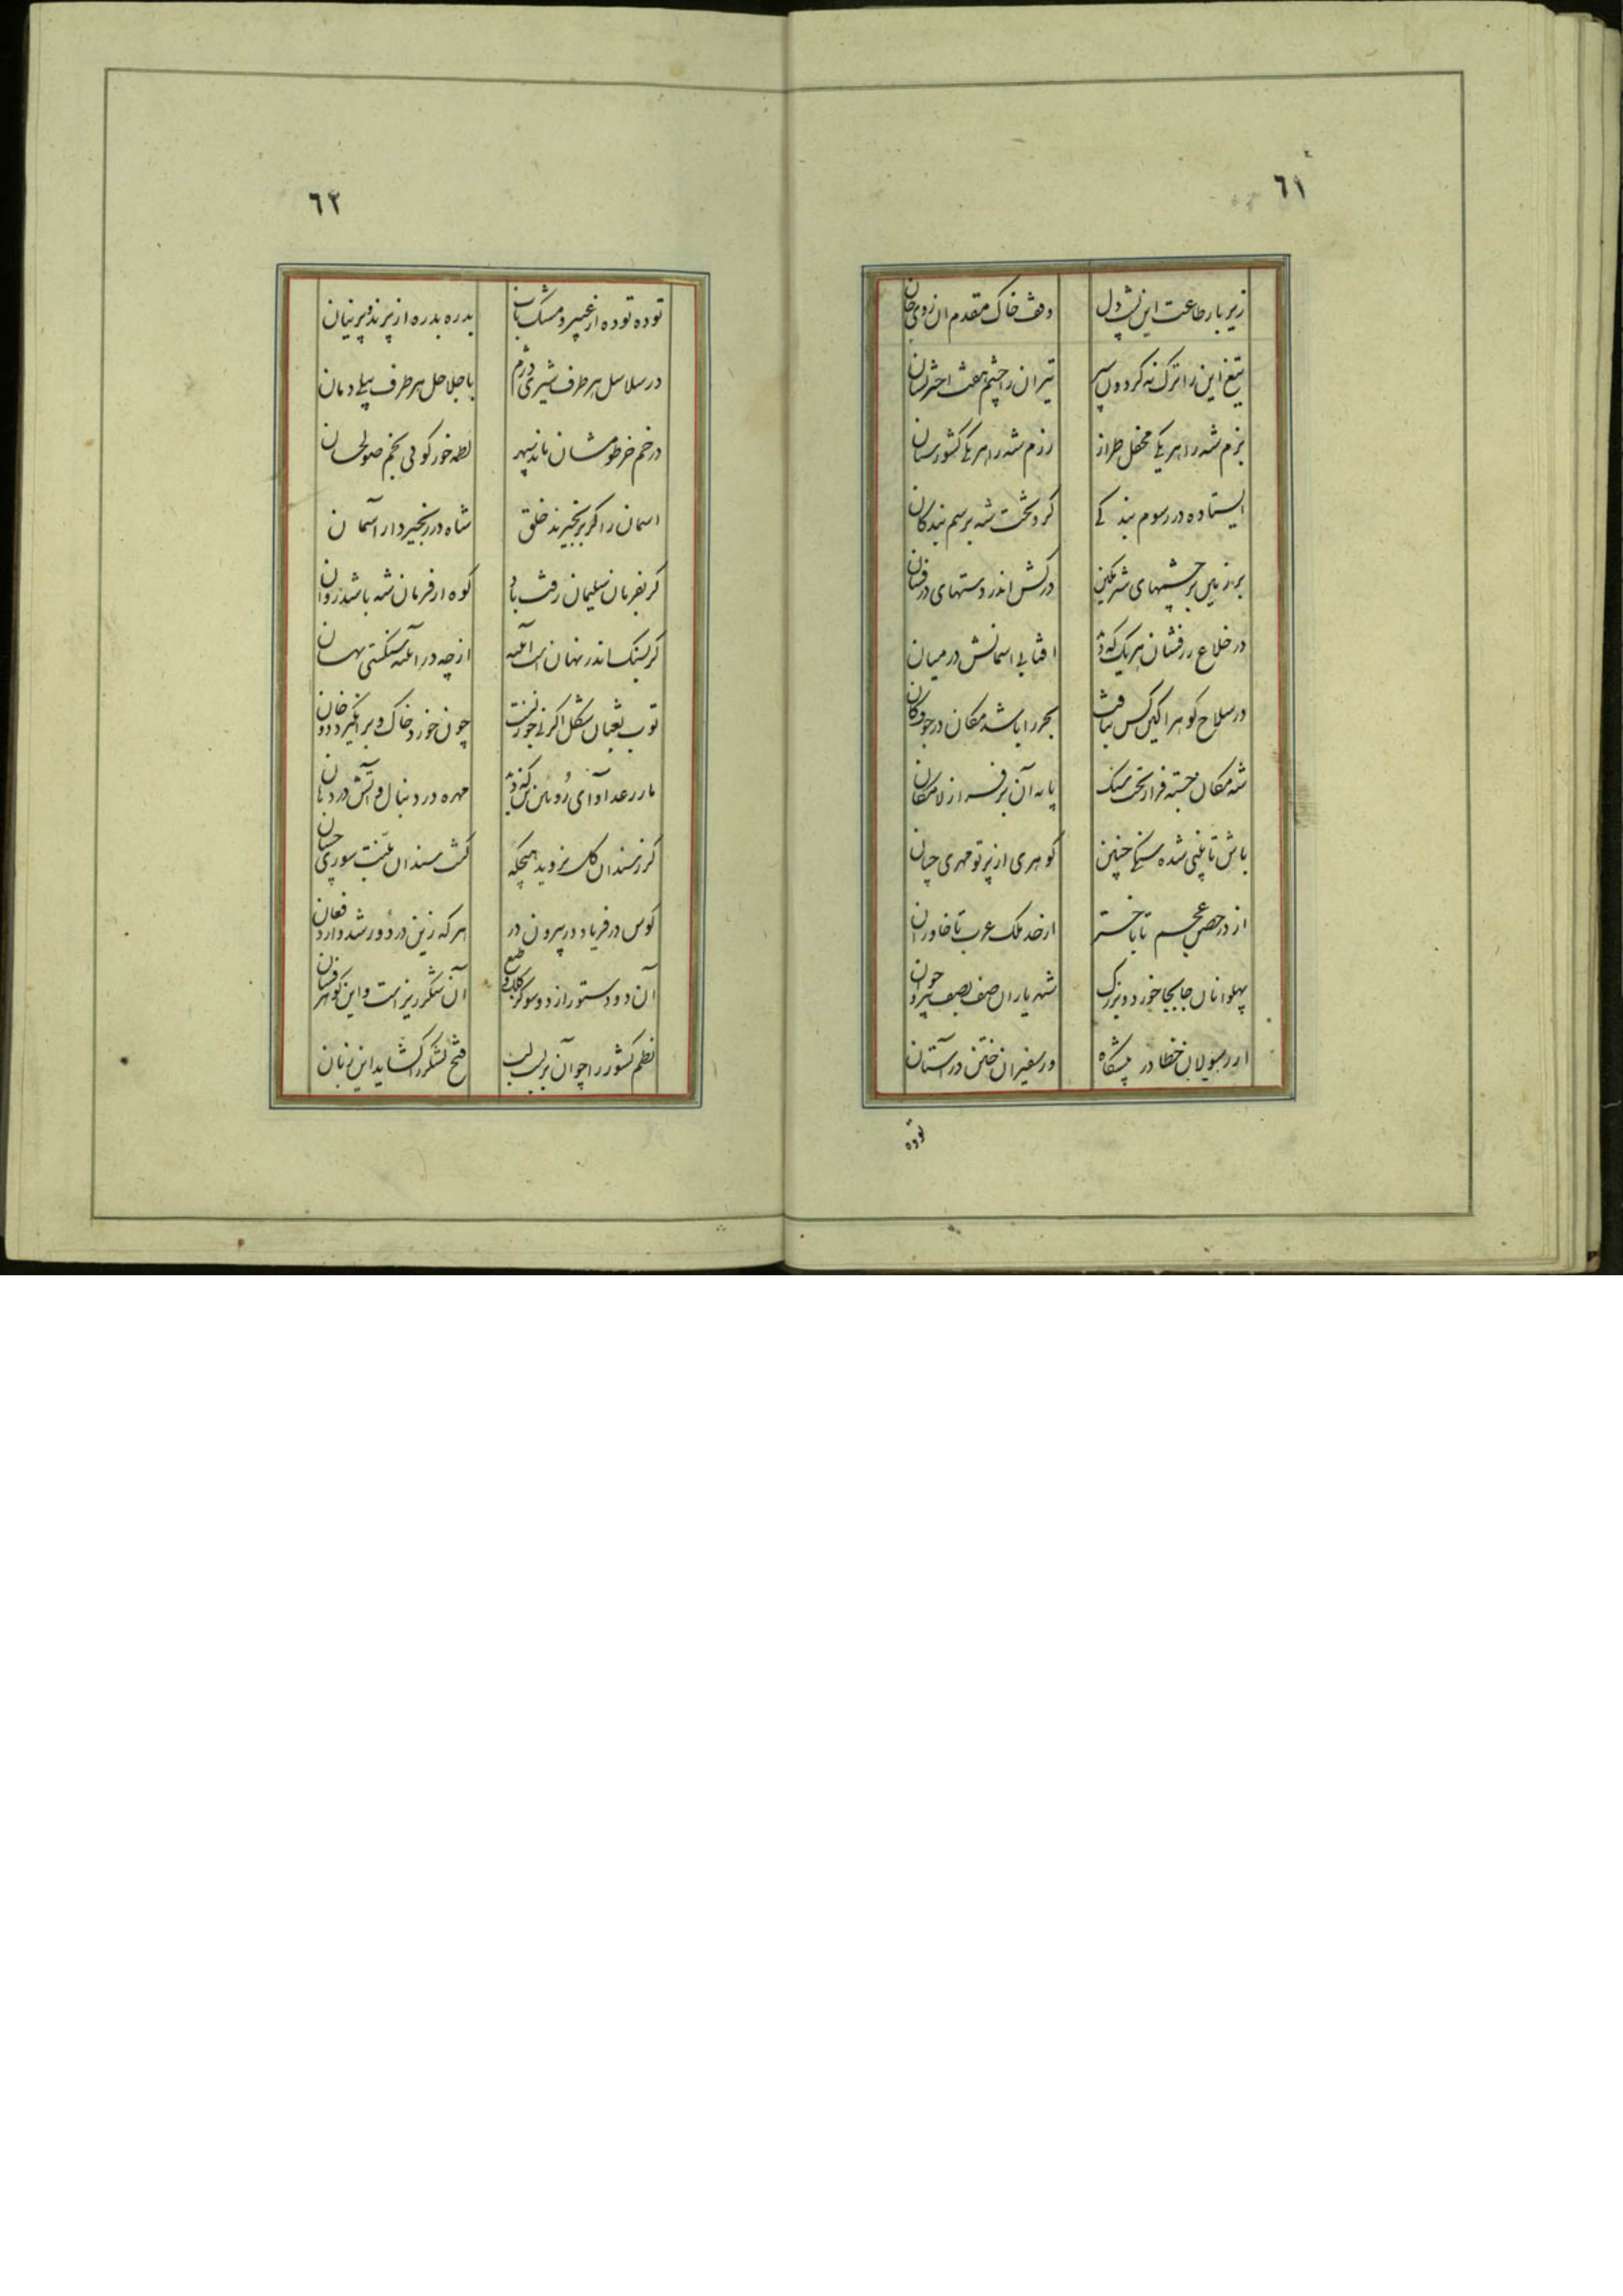 ٦١
زیر بار طاعت این پشت دل
وقف خاک مقدم آن روی جان
تیغ این را ترک نه کردون سپر
تیر آن را چشم هفت اختر نشان
بزم شه را هر یکی محفل طراز
رزم شه را هر یکی کشورستان
ایستاده در رسوم بندکی
کرد تخت شه برسم بندکان
بر زمین بر چشمهای شرمکین
درکش اندر دستهای درفشان
در خلاع زرفشان هر یک که دید
افتابی اسمانش در میان
در سلاح کوهر اکین کس نیافت
بحر را باشد مکان در جوف کان
شه مکان جسته فراز تخت سنک
پایه آن برفراز لامکان
باش تا بینی شده سنکی چنین
کوهری از پرتو مهری چنان
از در حصن عجم تا باختر
از حد ملک عرب تا خاوران
پهلوانان جابجا خورد و بزرک
شهریاران صف بصف پیر و جوان
از رسولان خطا در پیشکاه
وز سفیران ختن در آستان
توده
٦٢
توده توده از عبیر و مشک ناب
بدره بدره از پرند و پرنیان
در سلاسل هر طرف شیری دژم
با جلاجل هر طرف پیلی دمان
در خم خرطومشان ماند سپهر
لطمه خور کوئی بخم صولجان
اسمان را کر بزنجیرند خلق
شاه در زنجیر دارد آسمان
کر بفرمان سلیمان رفت باد
کوه از فرمان شه باشد روان
کر بسنک اندر نهان است آینه
از چه در آینه سنکستی نهان
توپ ثعبان شکل اکر نی جوزنست
چون خورد خاک و برانکیزد دخان
مار رعد آوای روئین تن که دید
مهره در دنبال و آتش در دهان
کر ز سندان کل نروید هیچکه
کشت سندان منبت سوری چسان
کوس در فریاد در بیرون در
هر که زین در دور شد دارد فغان
آن دو دستور از دو سو کلک و طبع
آن شکرریز است و این کوهرفشان
نظم کشور را چو آن بر لب لب
فتح لشکر را کشاید این زبان